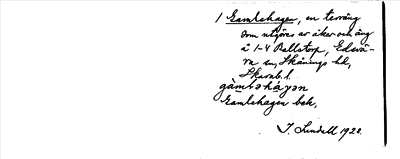 1 Gamlehagen, en terräng
som utgöres av åker och äng
å 1-4 Ballstorp, Edsvä-
ra sn, Skånings hd,
Skarab. l.
gàmləháγən
Gamlehagen bek.
I. Lundell 1920.